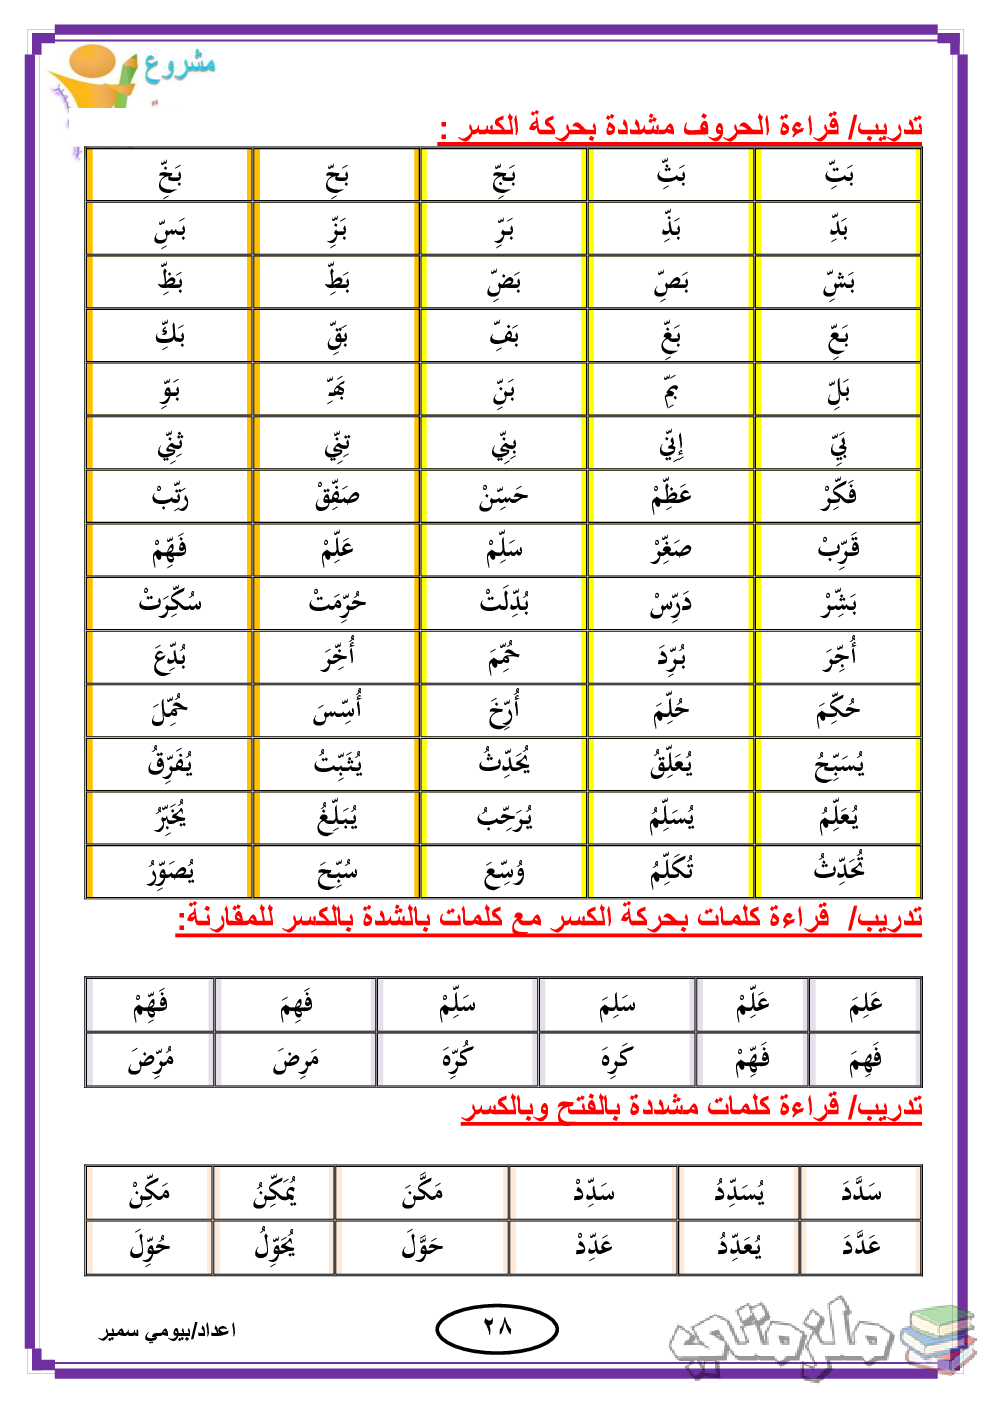 مشروع
تدريب/ قراءة الحروف مشددة بحركة الكسر :
بَتِّ بَثِّ بَجِّ بَحِّ بَخِّ
بَدِّ بَذِّ بَرِّ بَزِّ بَسِّ
بَشِّ بَصِّ بَضِّ بَطِّ بَظِّ
بَعِّ بَغِّ بَفِّ بَقِّ بَكِّ
بَلِّ بَمِّ بَنِّ بَهِّـ بَوِّ
بَيِّ إِنِّي بِنِّي تِنِّي ثِنِّي
فَكِّرْ عَظِّمْ حَسِّنْ صَفِّقْ رَتِّبْ
قَرِّبْ صَغِّرْ سَلِّمْ عَلِّمْ فَهِّمْ
بَشِّرْ دَرِّسْ بُدِّلَتْ حُرِّمَتْ سُكِّرَتْ
أُجِّرَ بُرِّدَ حُمِّمَ أُخِّرَ بُدِّعَ
حُكِّمَ حُلِّمَ أُرِّخَ أُسِّسَ حُمِّلَ
يُسَبِّحُ يُعَلِّقُ يُحَدِّثُ يُثَبِّتُ يُفَرِّقُ
يُعَلِّمُ يُسَلِّمُ يُرَحِّبُ يُبَلِّغُ يُخَبِّرُ
تُحَدِّثُ تُكَلِّمُ وُسِّعَ سُبِّحَ يُصَوِّرُ
تدريب/ قراءة كلمات بحركة الكسر مع كلمات بالشدة بالكسر للمقارنة:
عَلِمَ عَلِّمْ سَلِمَ سَلِّمْ فَهِمَ فَهِّمْ
فَهِمَ فَهِّمْ كَرِهَ كُرِّهَ مَرِضَ مُرِّضَ
تدريب/ قراءة كلمات مشددة بالفتح وبالكسر
سَدَّدَ يُسَدِّدُ سَدِّدْ مَكَّنَ يُمَكِّنُ مَكِّنْ
عَدَّدَ يُعَدِّدُ عَدِّدْ حَوَّلَ يُحَوِّلُ حُوِّلَ
٢٨
اعداد/بيومي سمير
ملزمتي